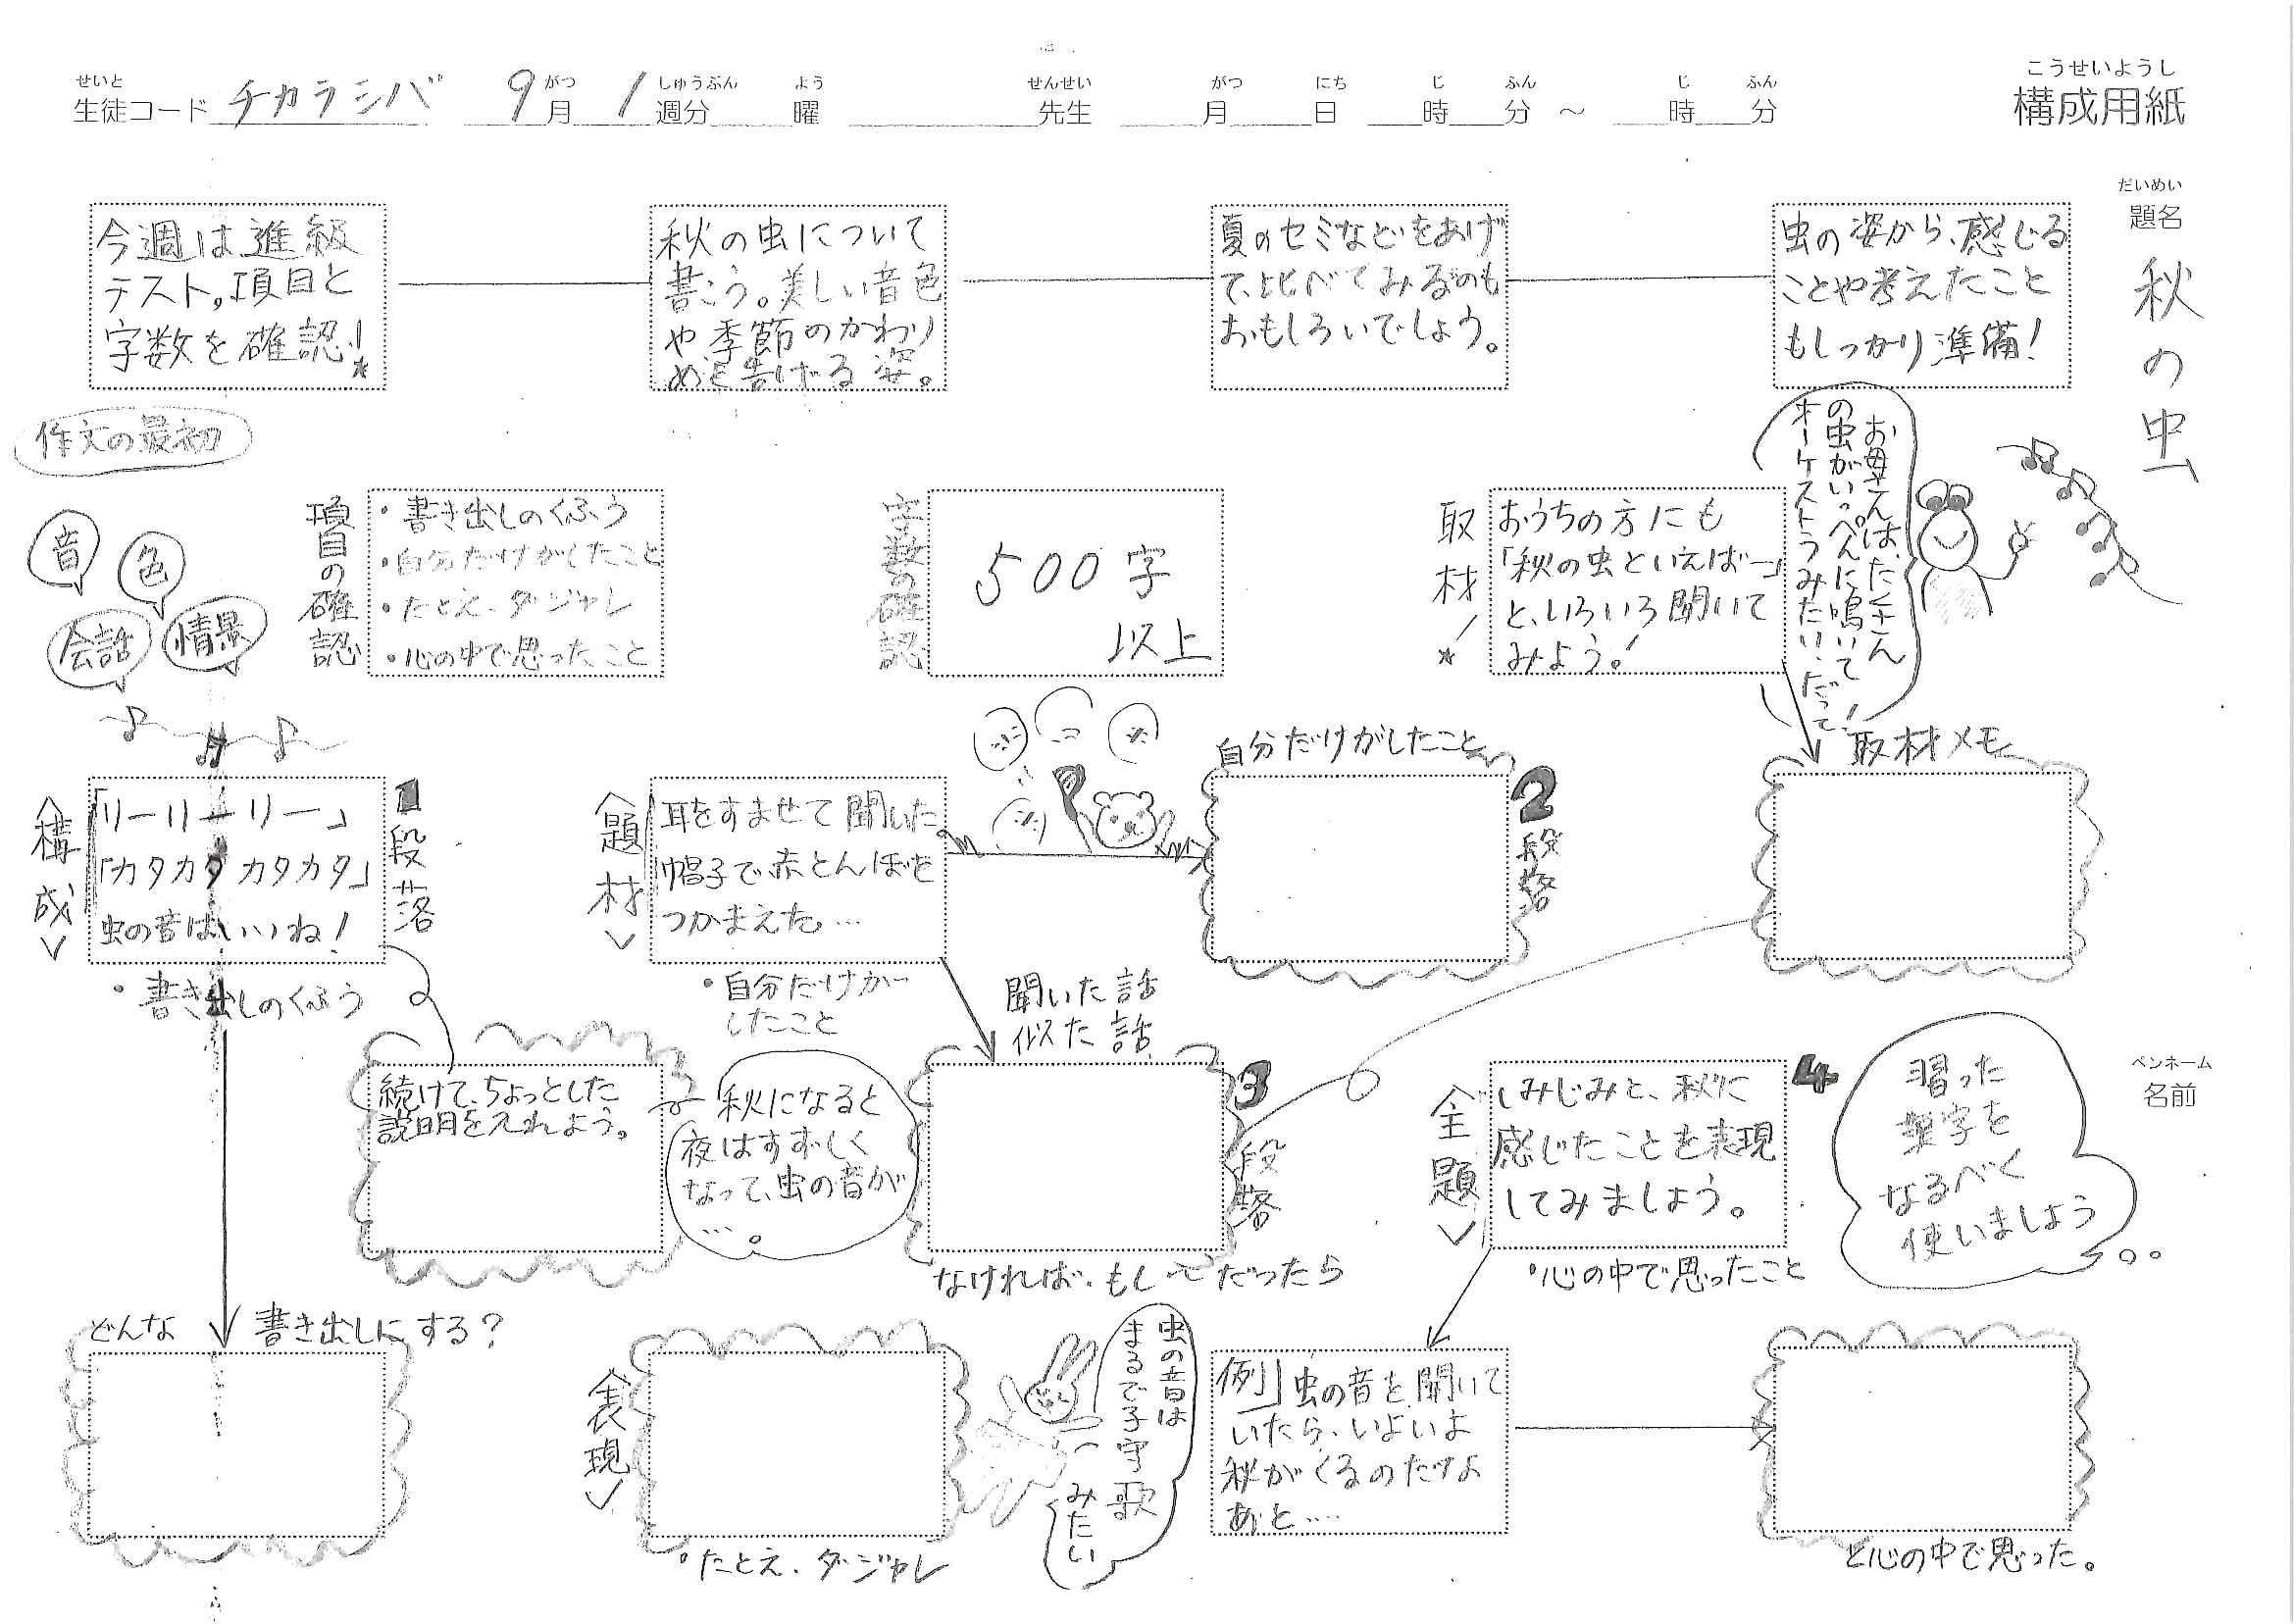 こうせいようし
構成用紙
せいと
生徒コード チカラシバ 9月 1週分 曜 先生 月 日 時 分 ～ 時 分
がつ しゅうぶん よう せんせい がつ にち じ ふん じ ふん
だいめい
題名
秋の虫
虫の姿から、感じる
ことや考えたこと
もしっかり準備！
夏のセミなどをあげ
て、比べてみるのも
おもしろいでしょう。
秋の虫について
書こう。美しい音色
や季節のかわり
めを告げる姿。
今週は進級
テスト。項目と
字数を確認！
作文の最初
音
色
会話
情景
お母さんは、たくさん
の虫がいっぺんに鳴いて
オーケストラみたい、だって！
取材！
おうちの方にも
「秋の虫といえば―」
と、いろいろ聞いて
みよう。！
字数の確認
500字
以上
項目の確認
・書き出しのくふう
・自分だけがしたこと
・たとえ、ダジャレ
・心の中で思ったこと
取材メモ
自分だけがしたこと
2段落
題材
耳をすませて聞いた。
帽子で赤とんぼを
つかまえた。…
・自分だけが
したこと
構成
1段落
「リーリーリー」
「カタカタカタカタ」
虫の音はいいね！
・書き出しのくふう
ペンネーム
名前
習った
漢字を
なるべく
使いましょう
全題
4
しみじみと、秋に
感じたことを表現
してみましょう。
・心の中で思ったこと
聞いた話
似た話
3段落
なければ、もし～だったら
続けて、ちょっとした
説明を入れよう。
秋になると
夜はすずしく
なって、虫の音が
…。
どんな書き出しにする？
表現
・たとえ、ダジャレ
虫の音は
まるで子守歌
みたい
例」虫の音を聞いて
いたら、いよいよ
秋がくるのだなよ
あと……
と心の中で思った。